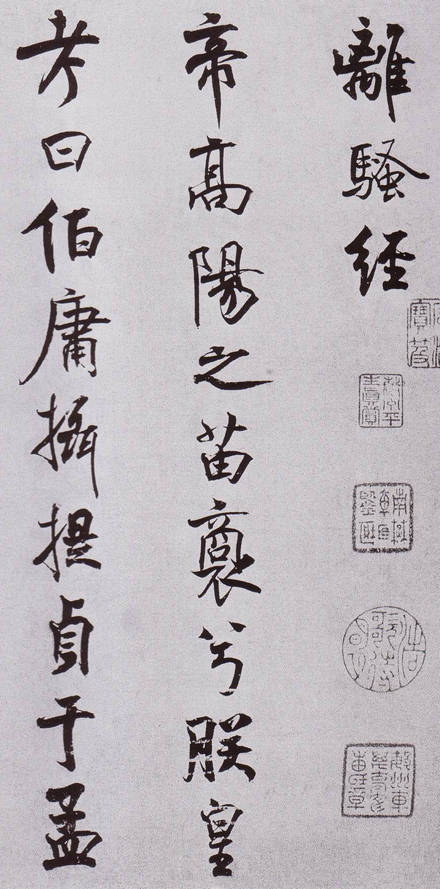 離騷經
帝髙陽之苗裔兮朕皇
考曰伯庸攝提貞于孟